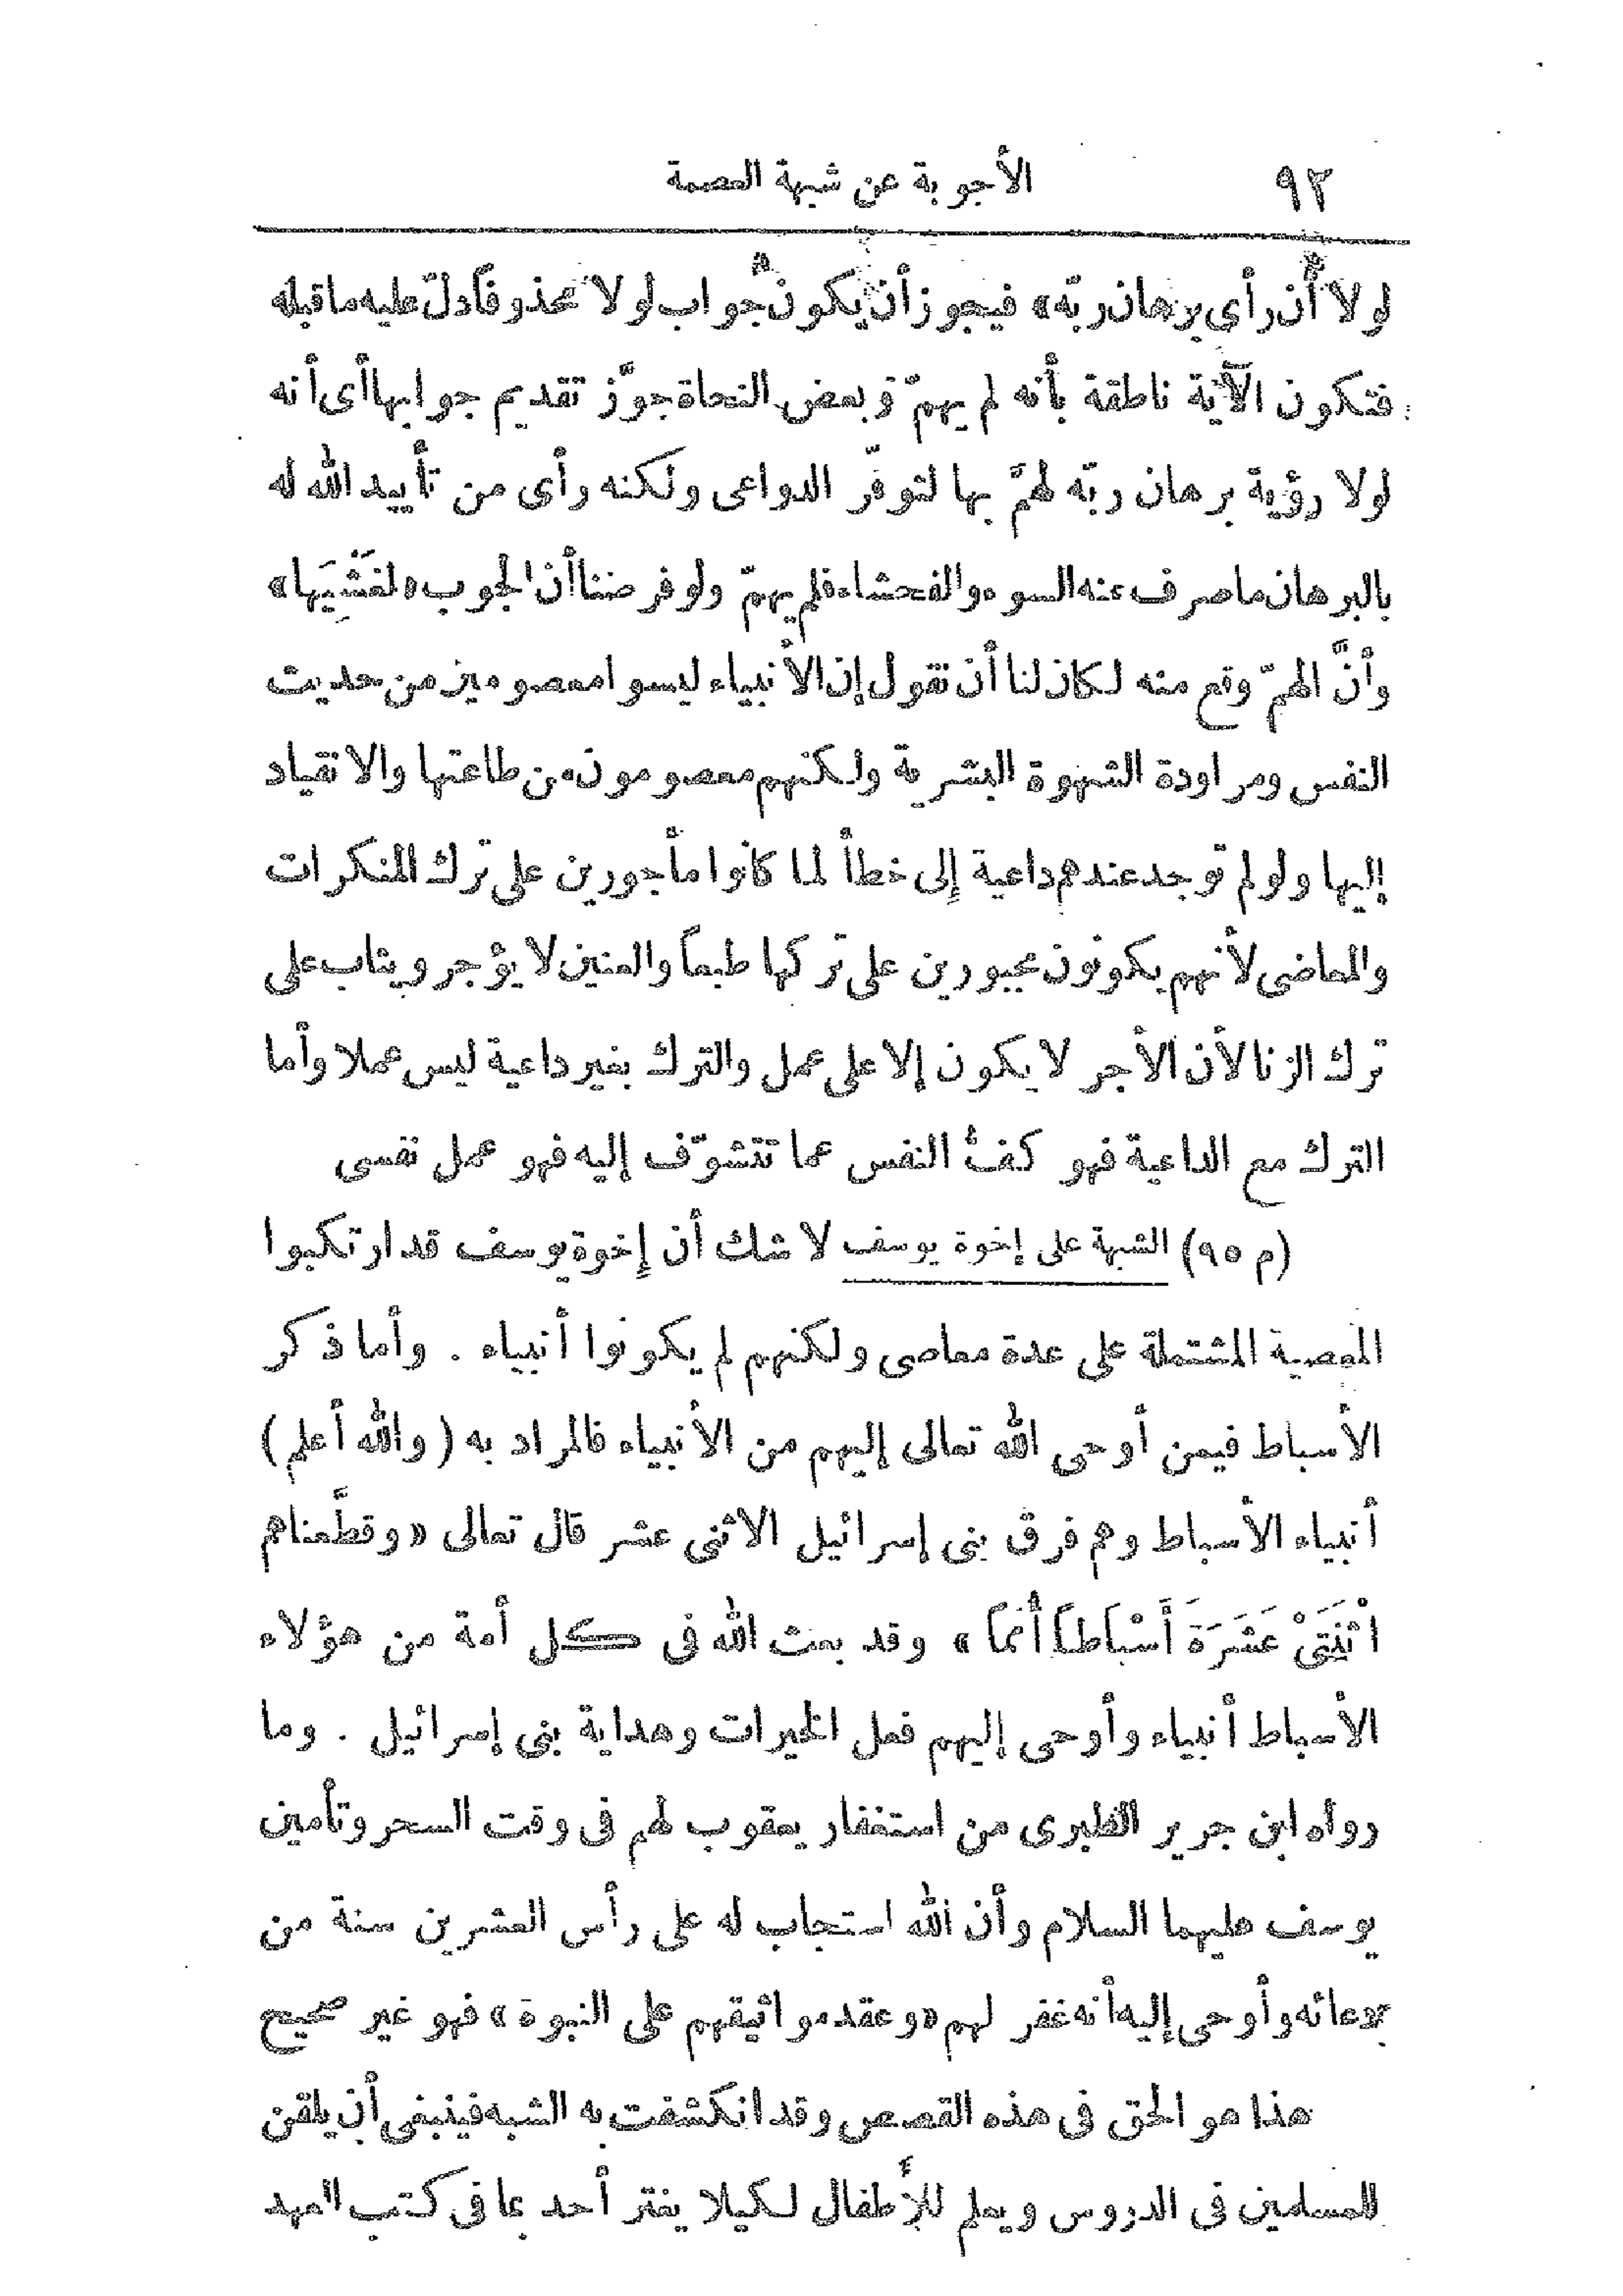 ٩٢ الأجوبة عن شبهة العصمة
لولا أن رأى برهان ربّه» فيجوز أن يكون جواب لولا محذوفاً دلّ عليه ماقبله
فتكون الآية ناطقة بأنه لم يهمّ وبعض النحاة جوَّز تقديم جوابها أى أنه
لولا رؤية برهان ربّه لهمَّ بها لتوفّر الدواعى ولكنه رأى من تأييد الله له
بالبرهان ماصرف عنه السوء والفحشاء فلم يهمّ ولو فرضنا أن الجوب «لغَشِيَها»
وأنَّ الهمّ وقع منه لكان لنا أن نقول إن الأنبياء ليسوا معصومين من حديث
النفس ومراودة الشهوة البشرية ولكنهم معصومون من طاعتها والانقياد
إليها ولو لم توجد عندهم داعية إلى خطأ لما كانوا مأجورين على ترك المنكرات
والمعاصى لأنهم يكونون مجبورين على تركها طبعاً والعنين لا يؤجر ويثاب على
ترك الزنا لأن الأجر لا يكون إلا على عمل والترك بغير داعية ليس عملا وأما
الترك مع الداعية فهو كفُّ النفس عما تتشوّف إليه فهو عمل نفسى
(م ٩٥) الشبهة على إخوة يوسف لا شك أن إخوة يوسف قد ارتكبوا
المعصية المشتملة على عدة معاصى ولكنهم لم يكونوا أنبياء . وأما ذكر
الأسباط فيمن أوحى الله تعالى إليهم من الأنبياء فالمراد به (والله أعلم)
أنبياء الأسباط وهم فرق بنى إسرائيل الاثنى عشر قال تعالى «وقطَّعناهم
اثْنَتَىْ عَشَرَةَ أَسْبَاطاً أُمَماً» وقد بعث الله فى كل أمة من هؤلاء
الأسباط أنبياء وأوحى إليهم فعل الخيرات وهداية بنى إسرائيل . وما
رواه ابن جرير الطبرى من استغفار يعقوب لهم فى وقت السحر وتأمين
يوسف عليهما السلام وأن الله استجاب له على رأس العشرين سنة من
دعائه وأوحى إليه أنه غفر لهم «وعقد مواثيقهم على النبوة» فهو غير صحيح
هذا هو الحق فى هذه القصص وقد انكشفت به الشبه فينبغى أن يلقن
للمسلمين فى الدروس ويعلم للأطفال لكيلا يغتر أحد بما فى كتب العهد